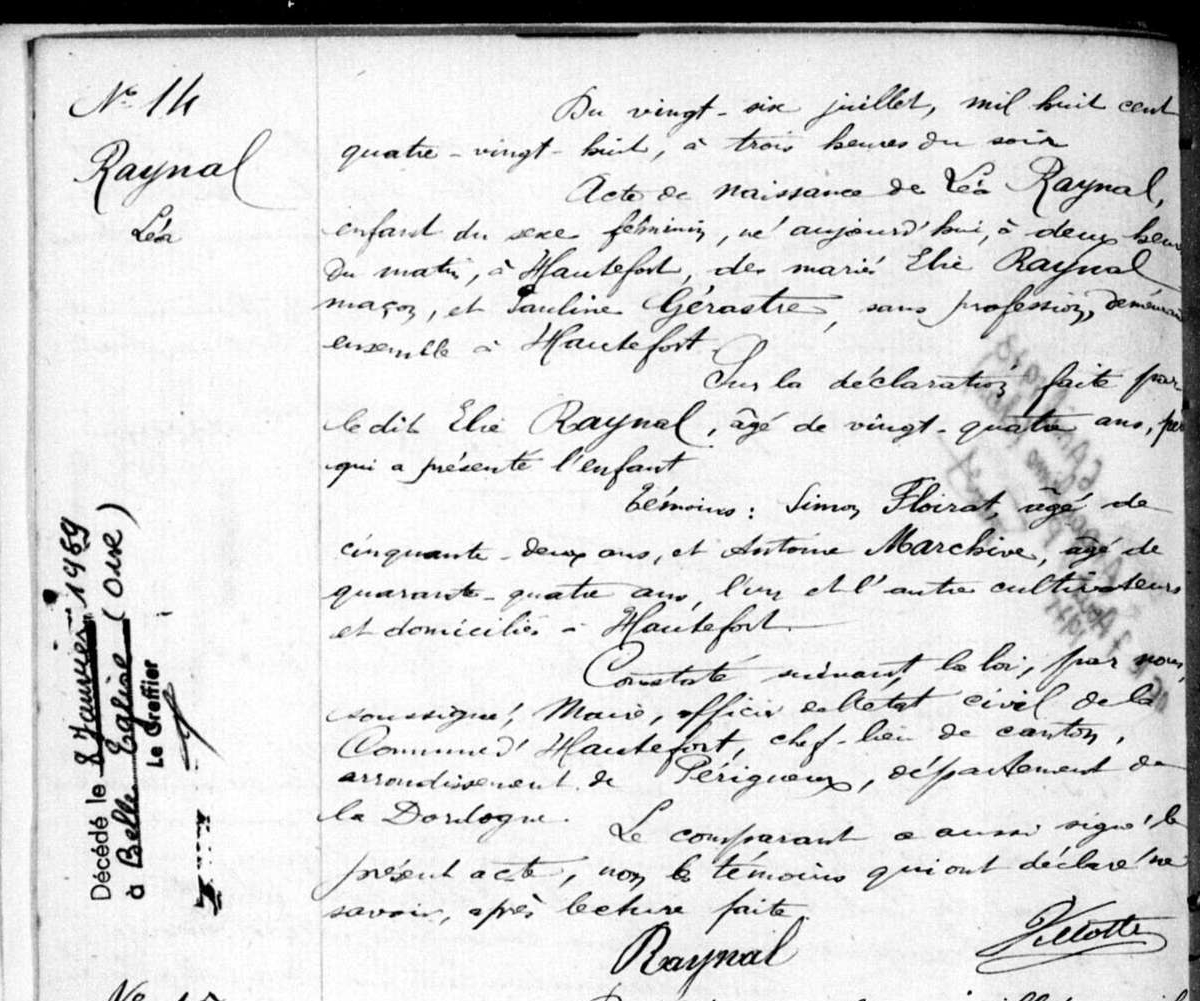 Nº 14
Raynal
Léa
Du vingt-six juillet, mil huit cent
quatre-vingt-huit, à trois heures du soir
Acte de naissance de Léa Raynal,
enfant du sexe féminin, né aujourd'hui, à deux heur
du matin, à Hautefort, des mariés Elie Raynal
maçon, et Pauline Gérastre, sans profession, demeurant
ensemble à Hautefort.
Sur la déclaration faite par
le dit Elie Raynal, âgé de vingt-quatre ans, père
qui a présenté l'enfant
Témoins : Simon Floirat, âgé de
cinquante-deux ans, et Antoine Marchive, âgé de
quarante-quatre ans, l'un et l'autre cultivateurs
et domiciliés à Hautefort.
Constaté suivant la loi, par nous,
soussigné, Maire, officier de l'état civil de la
Commune d'Hautefort, chef-lieu de canton,
arrondissement de Périgueux, département de
la Dordogne.
Le comparant a aussi signé le
présent acte, non les témoins qui ont déclaré ne
savoir, après lecture faite.
Raynal
Décédé le 8 Janvier 1969
à Belle Eglise (Oise)
Le Greffier